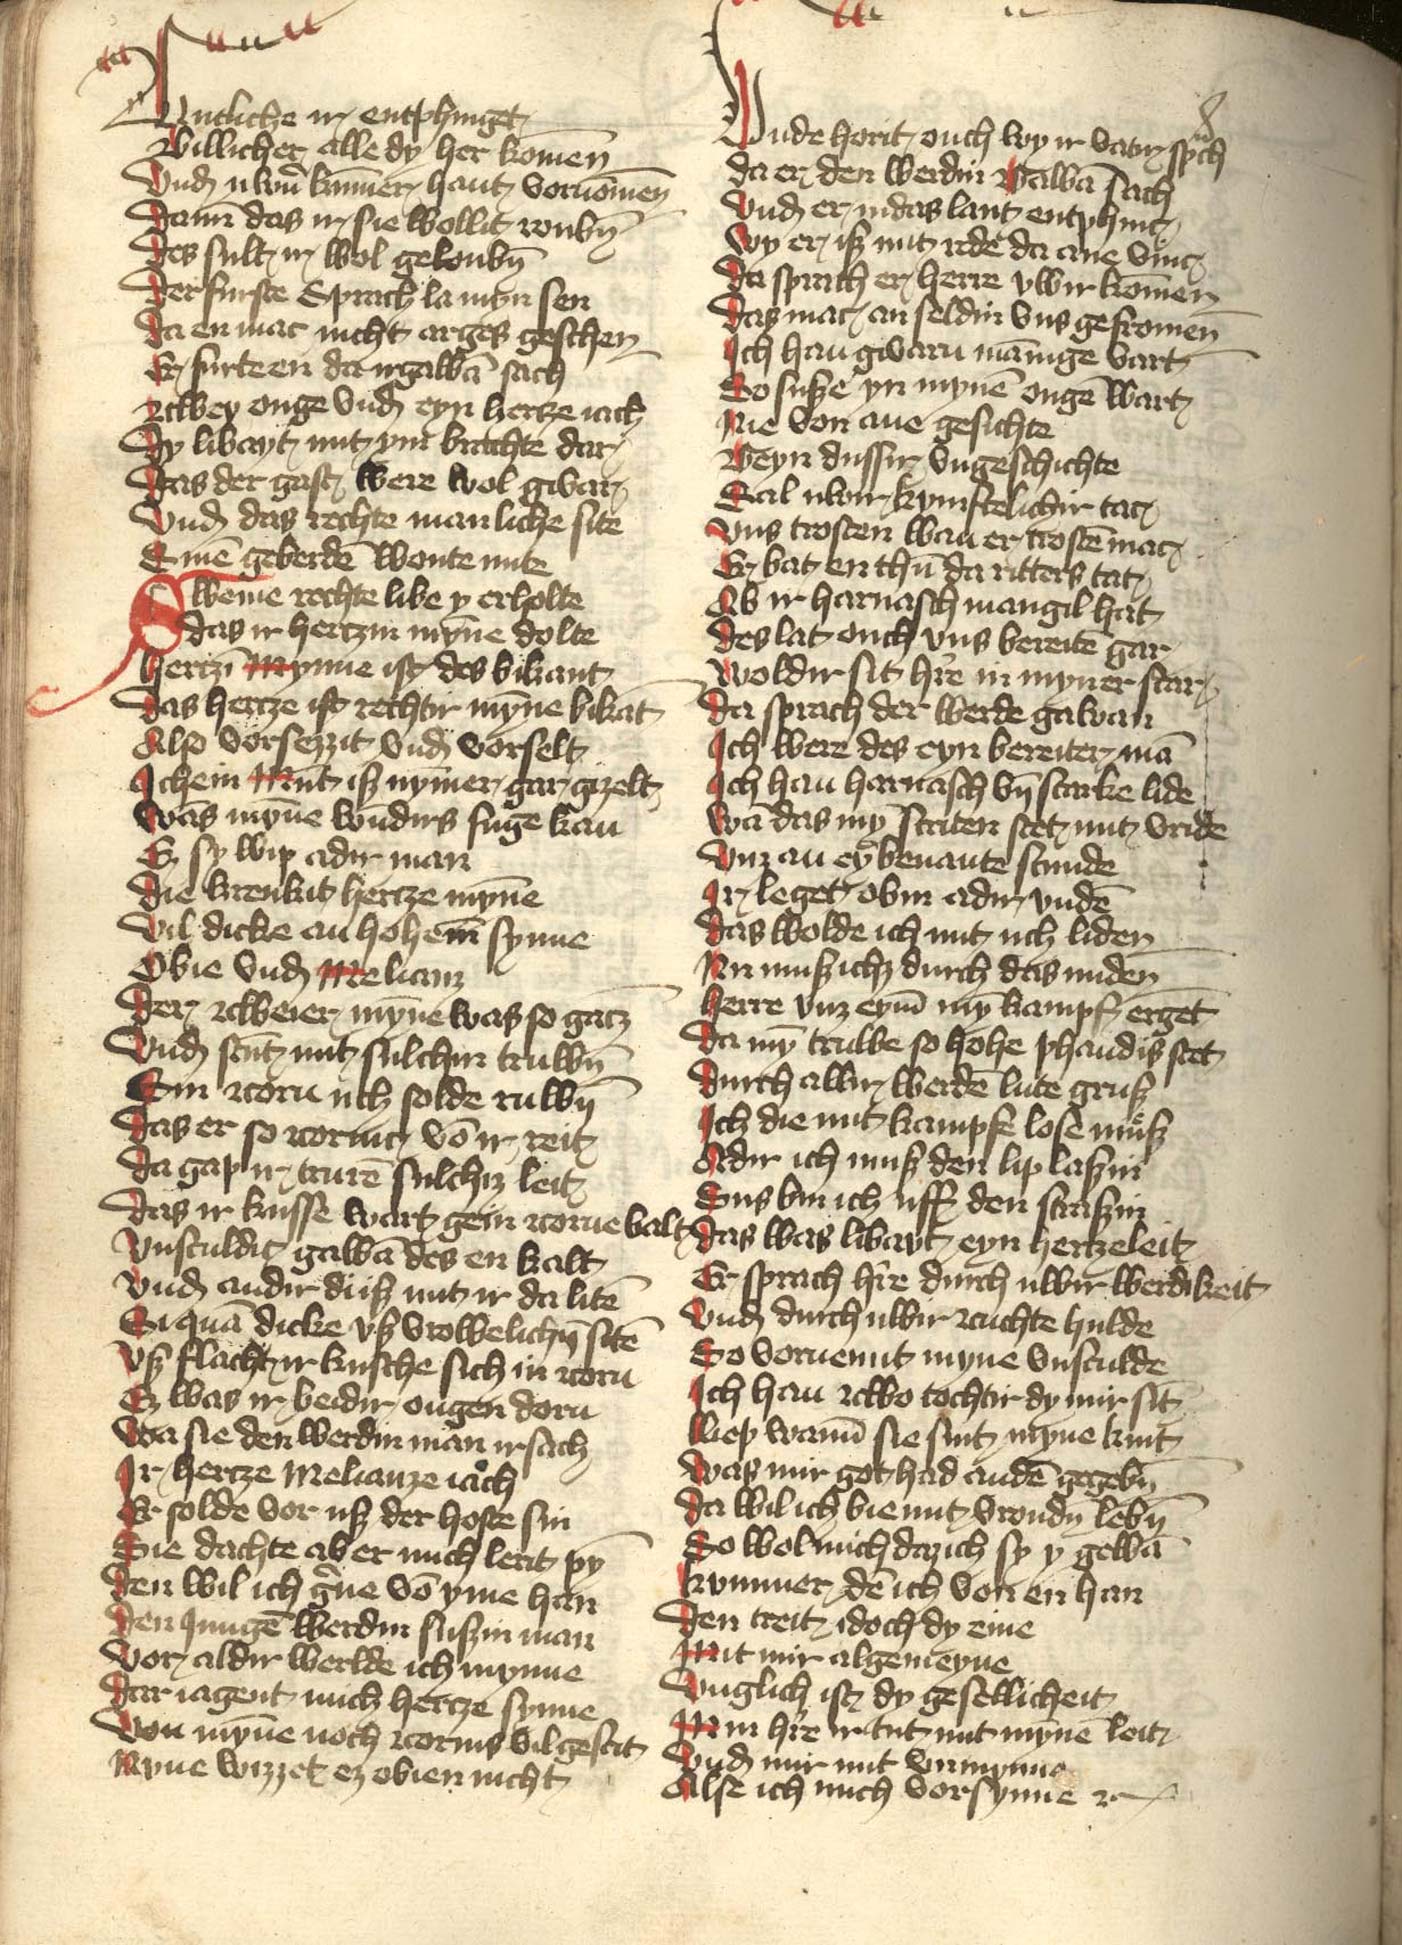 Gutliche ir entphinget
Billicher alle dy her komen
Vnd uwern kummer hant vornomen
Dann das ir sie wollit roubin
Des sult ir wol geloubin
Der furste Sprach la myn sen
Da en mac nicht arges geschen
Er furte en da ir galwan sach
Zcwey ouge vnd eyn hertze iach
Dy libayt mit ym brachte dar
Das der gast were wol gevar
Vnd das rechte manliche site
Sinē geberdē wonte mite
Sweme rechte libe y erholte
das ir hertzin mȳne dolte
Hertzin Mynne ist des bikant
Das hertze ist rechtir mȳne bikāt
Also vorsetzzit vnd vorselt
Ichein Mūt iß nȳmer gar gezelt
Was mȳne wundirs fuge kan
Ez sy wip adir man
Die krenkit hertze mȳne
Vil dicke an hohem synne
Obie vnd Melianz
Der zcweier mȳne was so gancz
Vnd stūt mit sulchin truwin
Sin zcorn uch solde ruwin
Das er so zcornic vō ir reit
Da gap ir trurē sulchiz leit
Das ir kussche wart gein zcorne balt
Vnsculdic galwā des en kalt
Vnd andir diß mit ir da litē
Si quā dicke vß vrowelichin sitē
Vß flacht ir kusche sich in zcorn
Ez was ir beidir ougen dorn
Wa sie den werdin man irsach
Ir hertze Melianze iach
Er solde vor uß der hoste sin
Sie dachte ab er mich lerit pin
Den wil ich gerne vō yme han
Den Jungē werdin sußin man
Vor aldir werlde ich mynne
Dar iagent mich hertze synne
Von mȳne noch zcorns vil gescit
Nyne wizzet ez obien nicht
Nude horit ouch wy ir vatir spch
Da er den werdin Galwā sach
Vnd er in das lant entphinc
Wy er iß mit rede da ane vinc
Da sprach er herre uwir komen
Das mac an seldin vns gefromen
Ich han gvarn mānige vart
So suße yn mynē ougē wart
Nie von ane gesichte
Geyn dussir vngeschichte
Sal uwir kumftelichir tac
Vns trosten wan er trostē mac
Er bat en thū da ritters tat
Ab ir harnasch mangil hat
Des lat ouch vns bereitē gar
Woldir sit hre in myner scar
Da sprach der werde galwan
Ich were des eyn bereiter mā
Ich han harnasch vn starke lide
Wā das my striten stet mit vride
Vnz an ey benante stunde
Ir leget obin adir vndē
Das wolde ich mit uch liden
Nu muß ichz durch das miden
Herre vnz eynī my kampf erget
Da my truwe so hohe phandis stet
Durch allir werdē lute gruß
Ich die mit kampfe losē muß
Adir ich muß den lip laßin
Sus bin ich uff den straßin
Das was libayt eyn hertzeleit
Er sprach hre durch uwir werdikeit
Vnd durch uwir zcuchte hulde
So vornemit myne vnsculde
Ich han zcwo tochtir dy mir sit
Liep wanū sie sint myne kint
Was mir got had andē gegebin
Da wil ich bie mit vroudin lebin
So wol mich daz ich sy y gewā
Kummer dē ich von en han
Den treit idoch dy eine
Mit mir algemeyne
Vnglich ist dy gesellicheit
Min hre ir tut mit mynē leit
Vnd mir mit vnmynne
Alse ich mich vorsynne